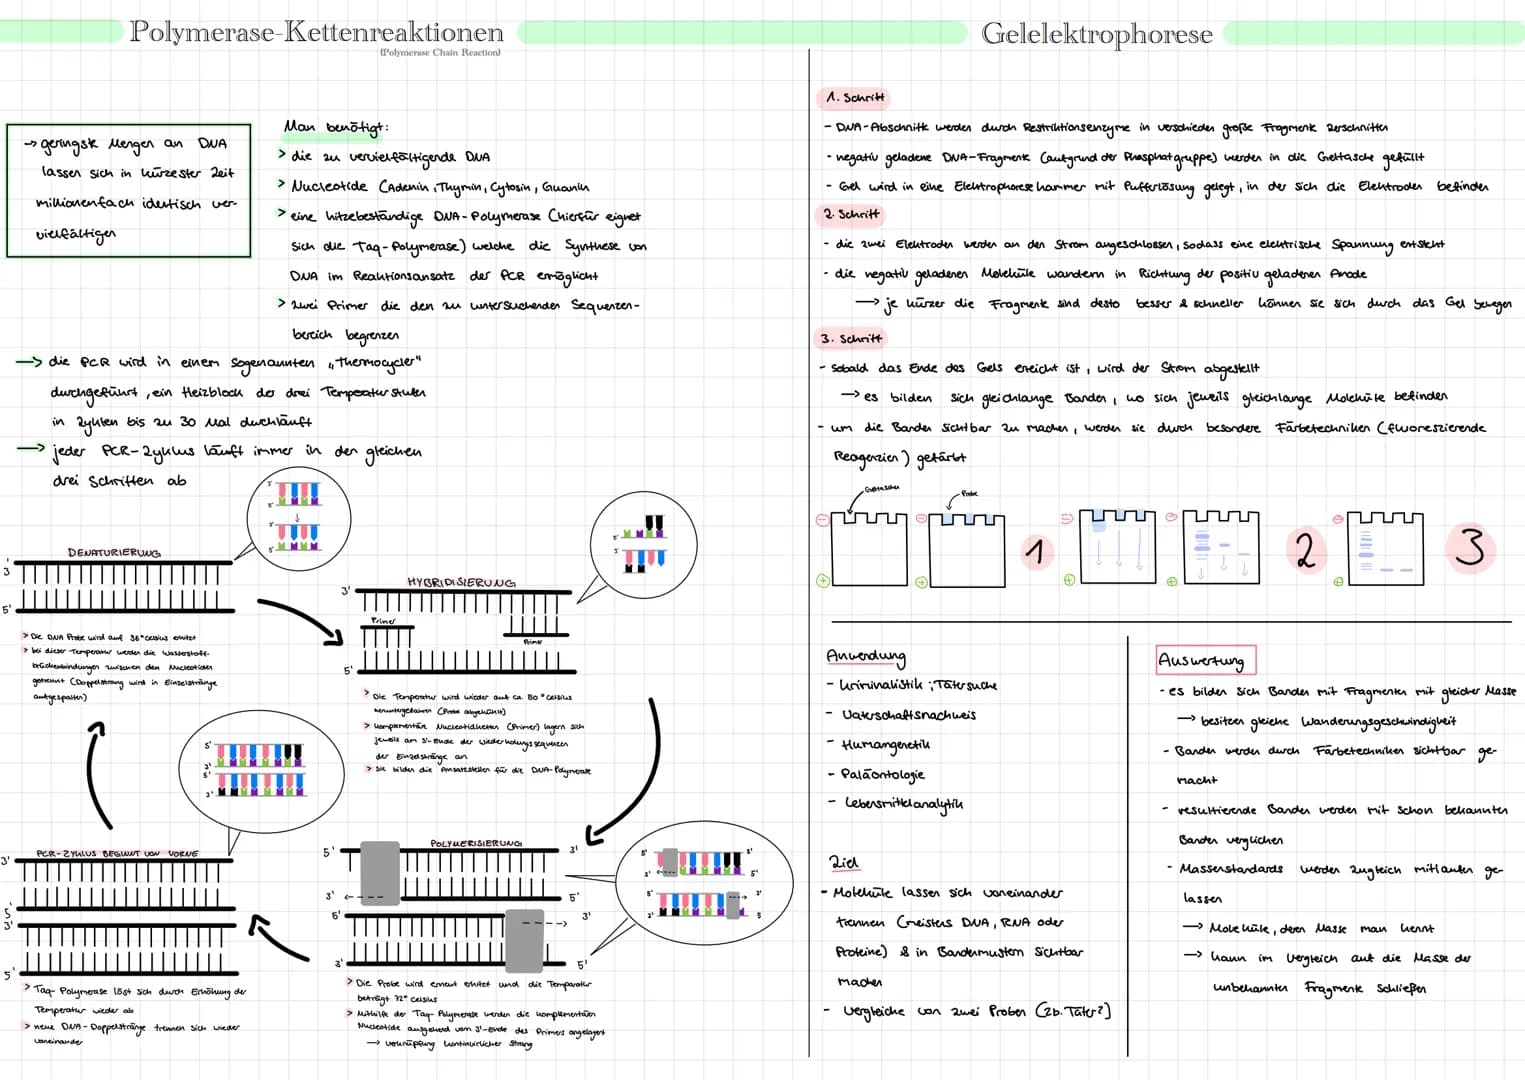 Polymerase-Kettenreaktionen
(Polymerase Chain Reaction)
→ geringste Mengen an DNA
lassen sich in kürzester Zeit
millionenfach identisch ver-
vielfältigen
Man benötigt:
> die zu vervielfältigende DNA
> Nucleotide (Adenin, Thymin, Cytosin, Guanin
> eine hitzebeständige DNA-Polymerase (hierfür eignet
sich die Taq-Polymerase) welche die Synthese von
DNA im Reaktionsansatz der PCR ermöglicht
> zwei Primer die den zu untersuchenden Sequenzen-
bereich begrenzen
→ die PCR wird in einem sogenannten „Thermocycler"
durchgeführt, ein Heizblock der drei Temperaturstufen
in Zyklen bis zu 30 Mal durchläuft
→ jeder PCR-Zyklus läuft immer in den gleichen
drei Schritten ab
DENATURIERUNG
3'
5'
> Die DNA Probe wird auf 96° Celsius erhitzt
> bei dieser Temperatur werden die Wasserstoff-
brückenbindungen zwischen den Nucleotiden
getrennt (Doppelstrang wird in Einzelstränge
aufgespalten)
HYBRIDISIERUNG
3'
Primer
Primer
5'
> Die Temperatur wird wieder auf ca. 50° Celsius
heruntergefahren (Probe abgekühlt)
> komplementäre Nucleotidketten (Primer) lagern sich
jeweils am 3'-Ende der Wiederholungssequenzen
der Einzelstränge an
> Sie bilden die Ansatzstellen für die DNA-Polymerase
POLYMERISIERUNG
5'
3'
3'
5'
5'
3'
3'
5'
> Die Probe wird erneut erhitzt und die Temperatur
beträgt 72° Celsius
> Mithilfe der Taq-Polymerase werden die komplementären
Nucleotide ausgehend vom 3'-Ende des Primers angelagert
→ Verknüpfung kontinuierlicher Strang
PCR-ZYKLUS BEGINNT VON VORNE
3'
5'
3'
5'
> Taq-Polymerase löst sich durch Erhöhung der
Temperatur wieder ab
> neue DNA-Doppelstränge trennen sich wieder
voneinander
Gelelektrophorese
1. Schritt
- DNA-Abschnitte werden durch Restriktionsenzyme in verschieden große Fragmente zerschnitten
- negativ geladene DNA-Fragmente (aufgrund der Phosphatgruppe) werden in die Geltasche gefüllt
- Gel wird in eine Elektrophoresekammer mit Pufferlösung gelegt, in der sich die Elektroden befinden
2. Schritt
- die zwei Elektroden werden an den Strom angeschlossen, sodass eine elektrische Spannung entsteht
- die negativ geladenen Moleküle wandern in Richtung der positiv geladenen Anode
→ je kürzer die Fragmente sind desto besser & schneller können sie sich durch das Gel bewegen
3. Schritt
- sobald das Ende des Gels erreicht ist, wird der Strom abgestellt
→ es bilden sich gleichlange Banden, wo sich jeweils gleichlange Moleküle befinden
- um die Banden sichtbar zu machen, werden sie durch besondere Färbetechniken (fluoreszierende
Reagenzien) gefärbt
Geltaschen
Probe
1
2
3
Anwendung
- Kriminalistik; Tätersuche
- Vaterschaftsnachweis
- Humangenetik
- Paläontologie
- Lebensmittelanalytik
Ziel
- Moleküle lassen sich voneinander
trennen (meistens DNA, RNA oder
Proteine) & in Bandenmustern sichtbar
machen
- Vergleiche von zwei Proben (zb. Täter?)
Auswertung
- es bilden sich Banden mit Fragmenten mit gleicher Masse
→ besitzen gleiche Wanderungsgeschwindigkeit
- Banden werden durch Färbetechniken sichtbar ge-
macht
- resultierende Banden werden mit schon bekannten
Banden verglichen
- Massenstandards werden zugleich mitlaufen ge-
lassen
→ Moleküle, deren Masse man kennt
→ kann im Vergleich auf die Masse der
unbekannten Fragmente schließen